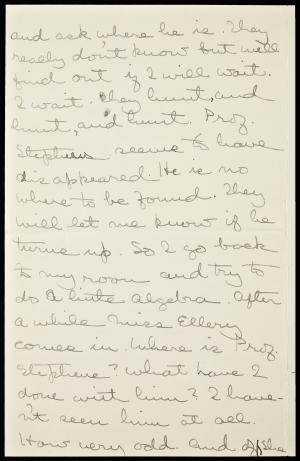 and ask where he is. They
really don't know but will
find out if I will wait.
I wait. They hunt, and
hunt, and hunt. Prof.
Stephens seems to have
disappeared. He is no
where to be found. They
will let me know if he
turns up. So I go back
to my room and try to
do a little algebra. After
a while Miss Ellery
comes in. Where is Prof.
Stephens? What have I
done with him? I have-
n't seen him at all.
How very odd. And off she